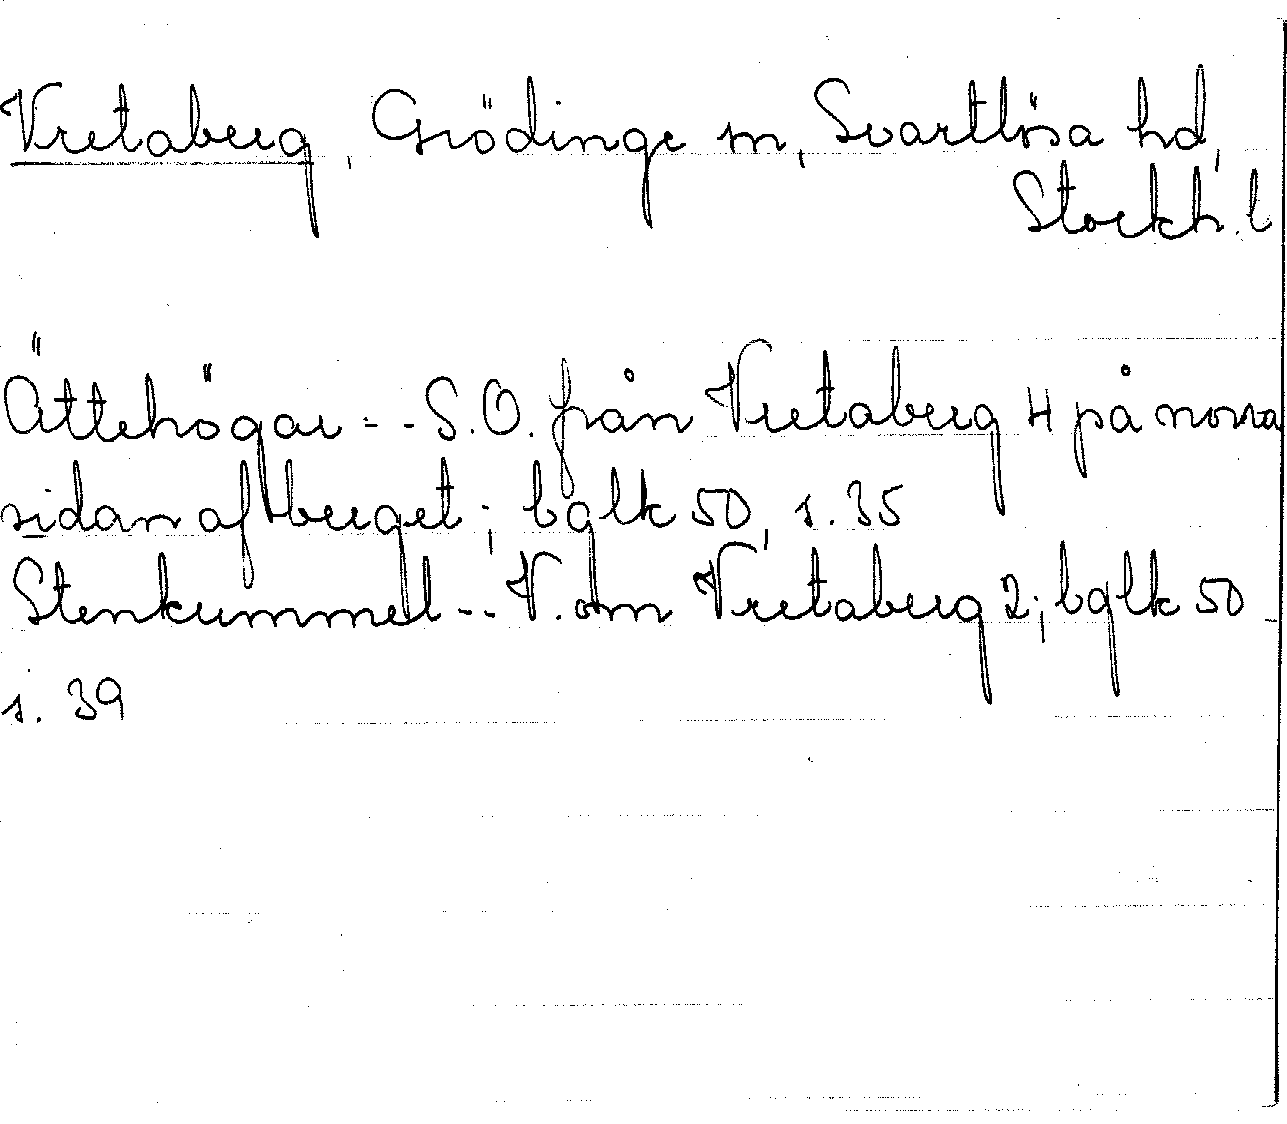 Vretaberg, Grödinge sn, Svartlösa hd,
Stockh. l
Ättehögar - - S.O. från Vretaberg 4 på norra
sidan af berget; bglk 50, s. 35
Stenkummel - - V. om Vretaberg 2; bglk 50
s. 39